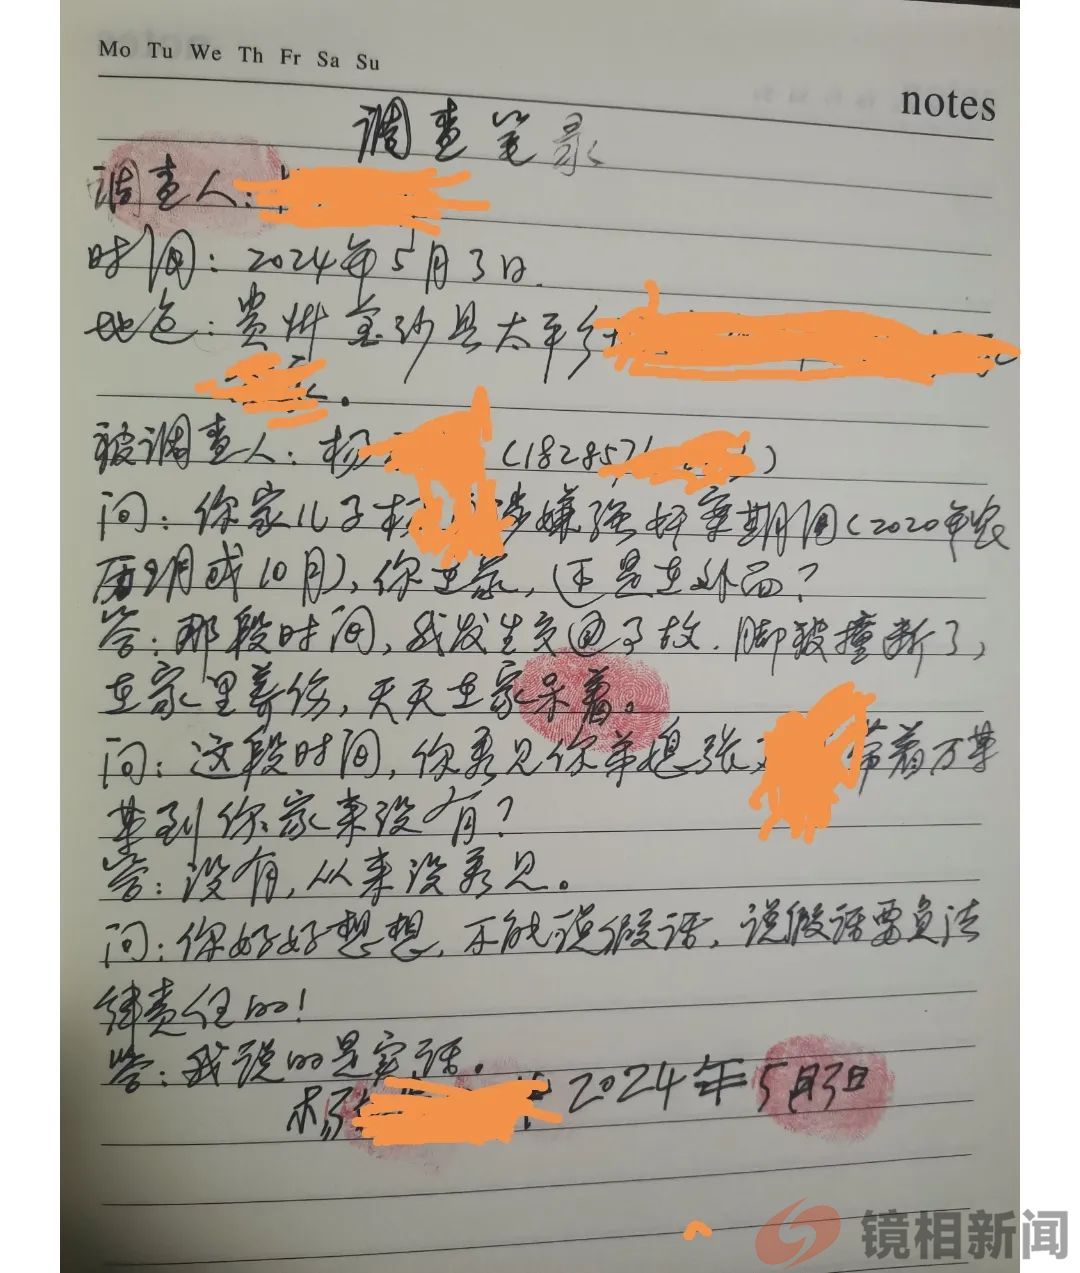 Mo Tu We Th Fr Sa Su
notes
调查笔录
调查人:
时间:2024年5月3日.
地点:贵州金沙县太平乡
。
被调查人:杨 (1828571 )
问:你家儿子杨 涉嫌强奸案期间(2020年农
历9月或10月),你在家,还是在外面?
答:那段时间,我发生交通事故.脚被撞断了,
在家里养伤,天天在家呆着。
问:这段时间,你看见你弟媳张 带着万某
某到你家来没有?
答:没有,从来没看见。
问:你好好想想,不能说假话,说假话要负法
律责任的!
答:我说的是实话。
杨 2024年5月3日
镜相新闻